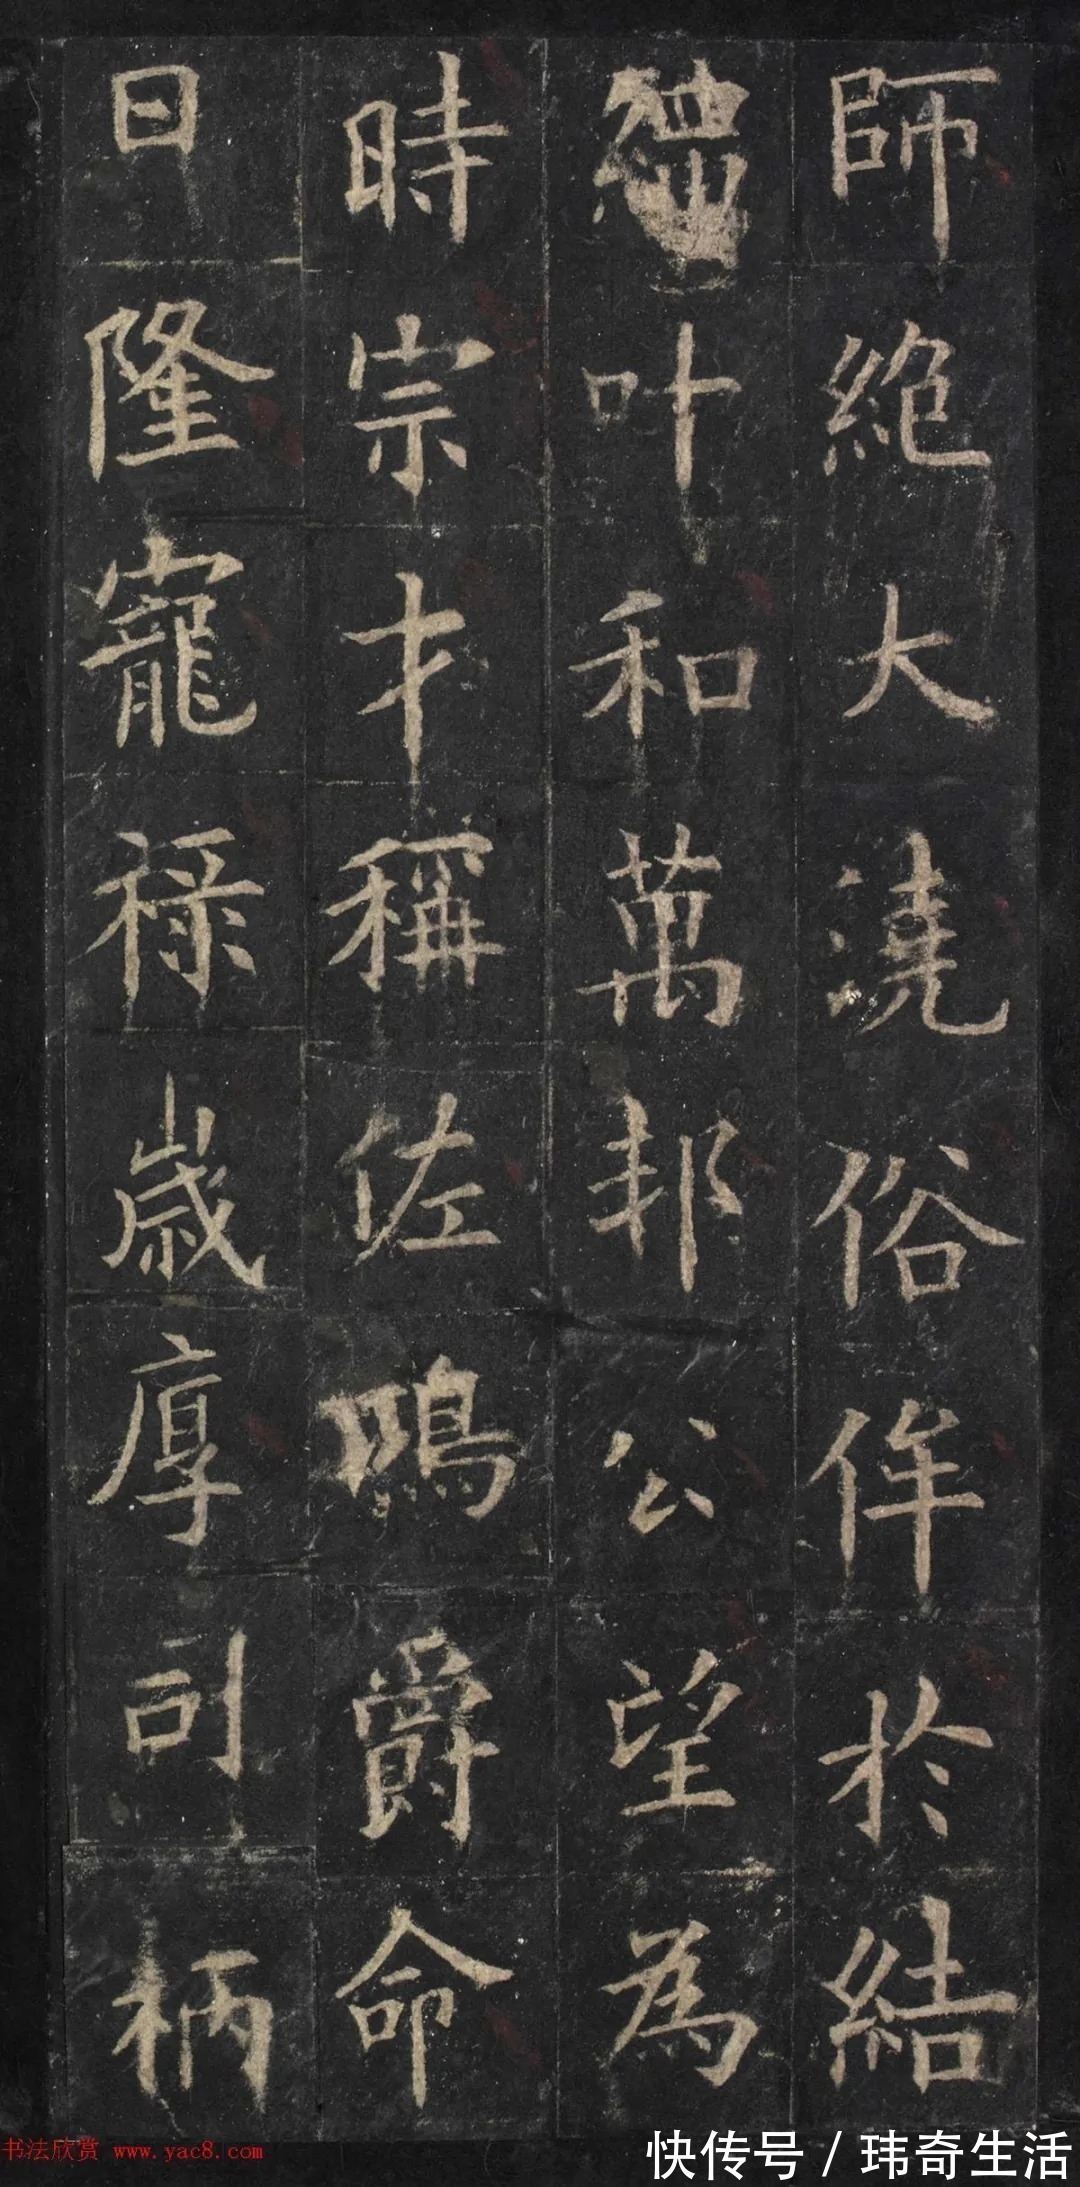 師絶大澆俗侔於結
繩叶和萬邦公望為
時宗才稱佐鳴爵命
日隆寵禄歳厚司柄
书法欣赏 www.yac8.com
快传号 / 玮奇生活